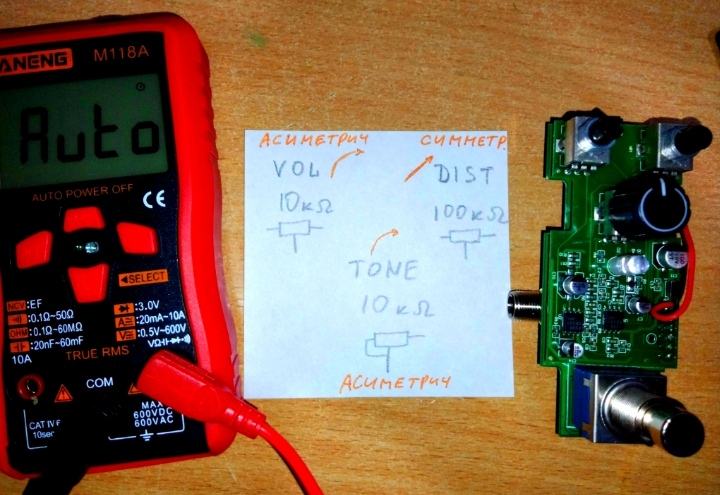 ANENG M118A
Auto
AUTO POWER OFF
CE
SELECT
NCV :EF
:0.1Ω~50Ω
OHM :0.1Ω~60MΩ
:20nF~60mF
:3.0V
A :20mA~10A
V :0.5V~600V
10A
TRUE RMS
COM
CAT IV 6
10sec
MAX
600VDC
600VAC
АСИМЕТРИЧ
СИММЕТР
VOL
DIST
10кΩ
100кΩ
TONE
10кΩ
АСИМЕТРИЧ